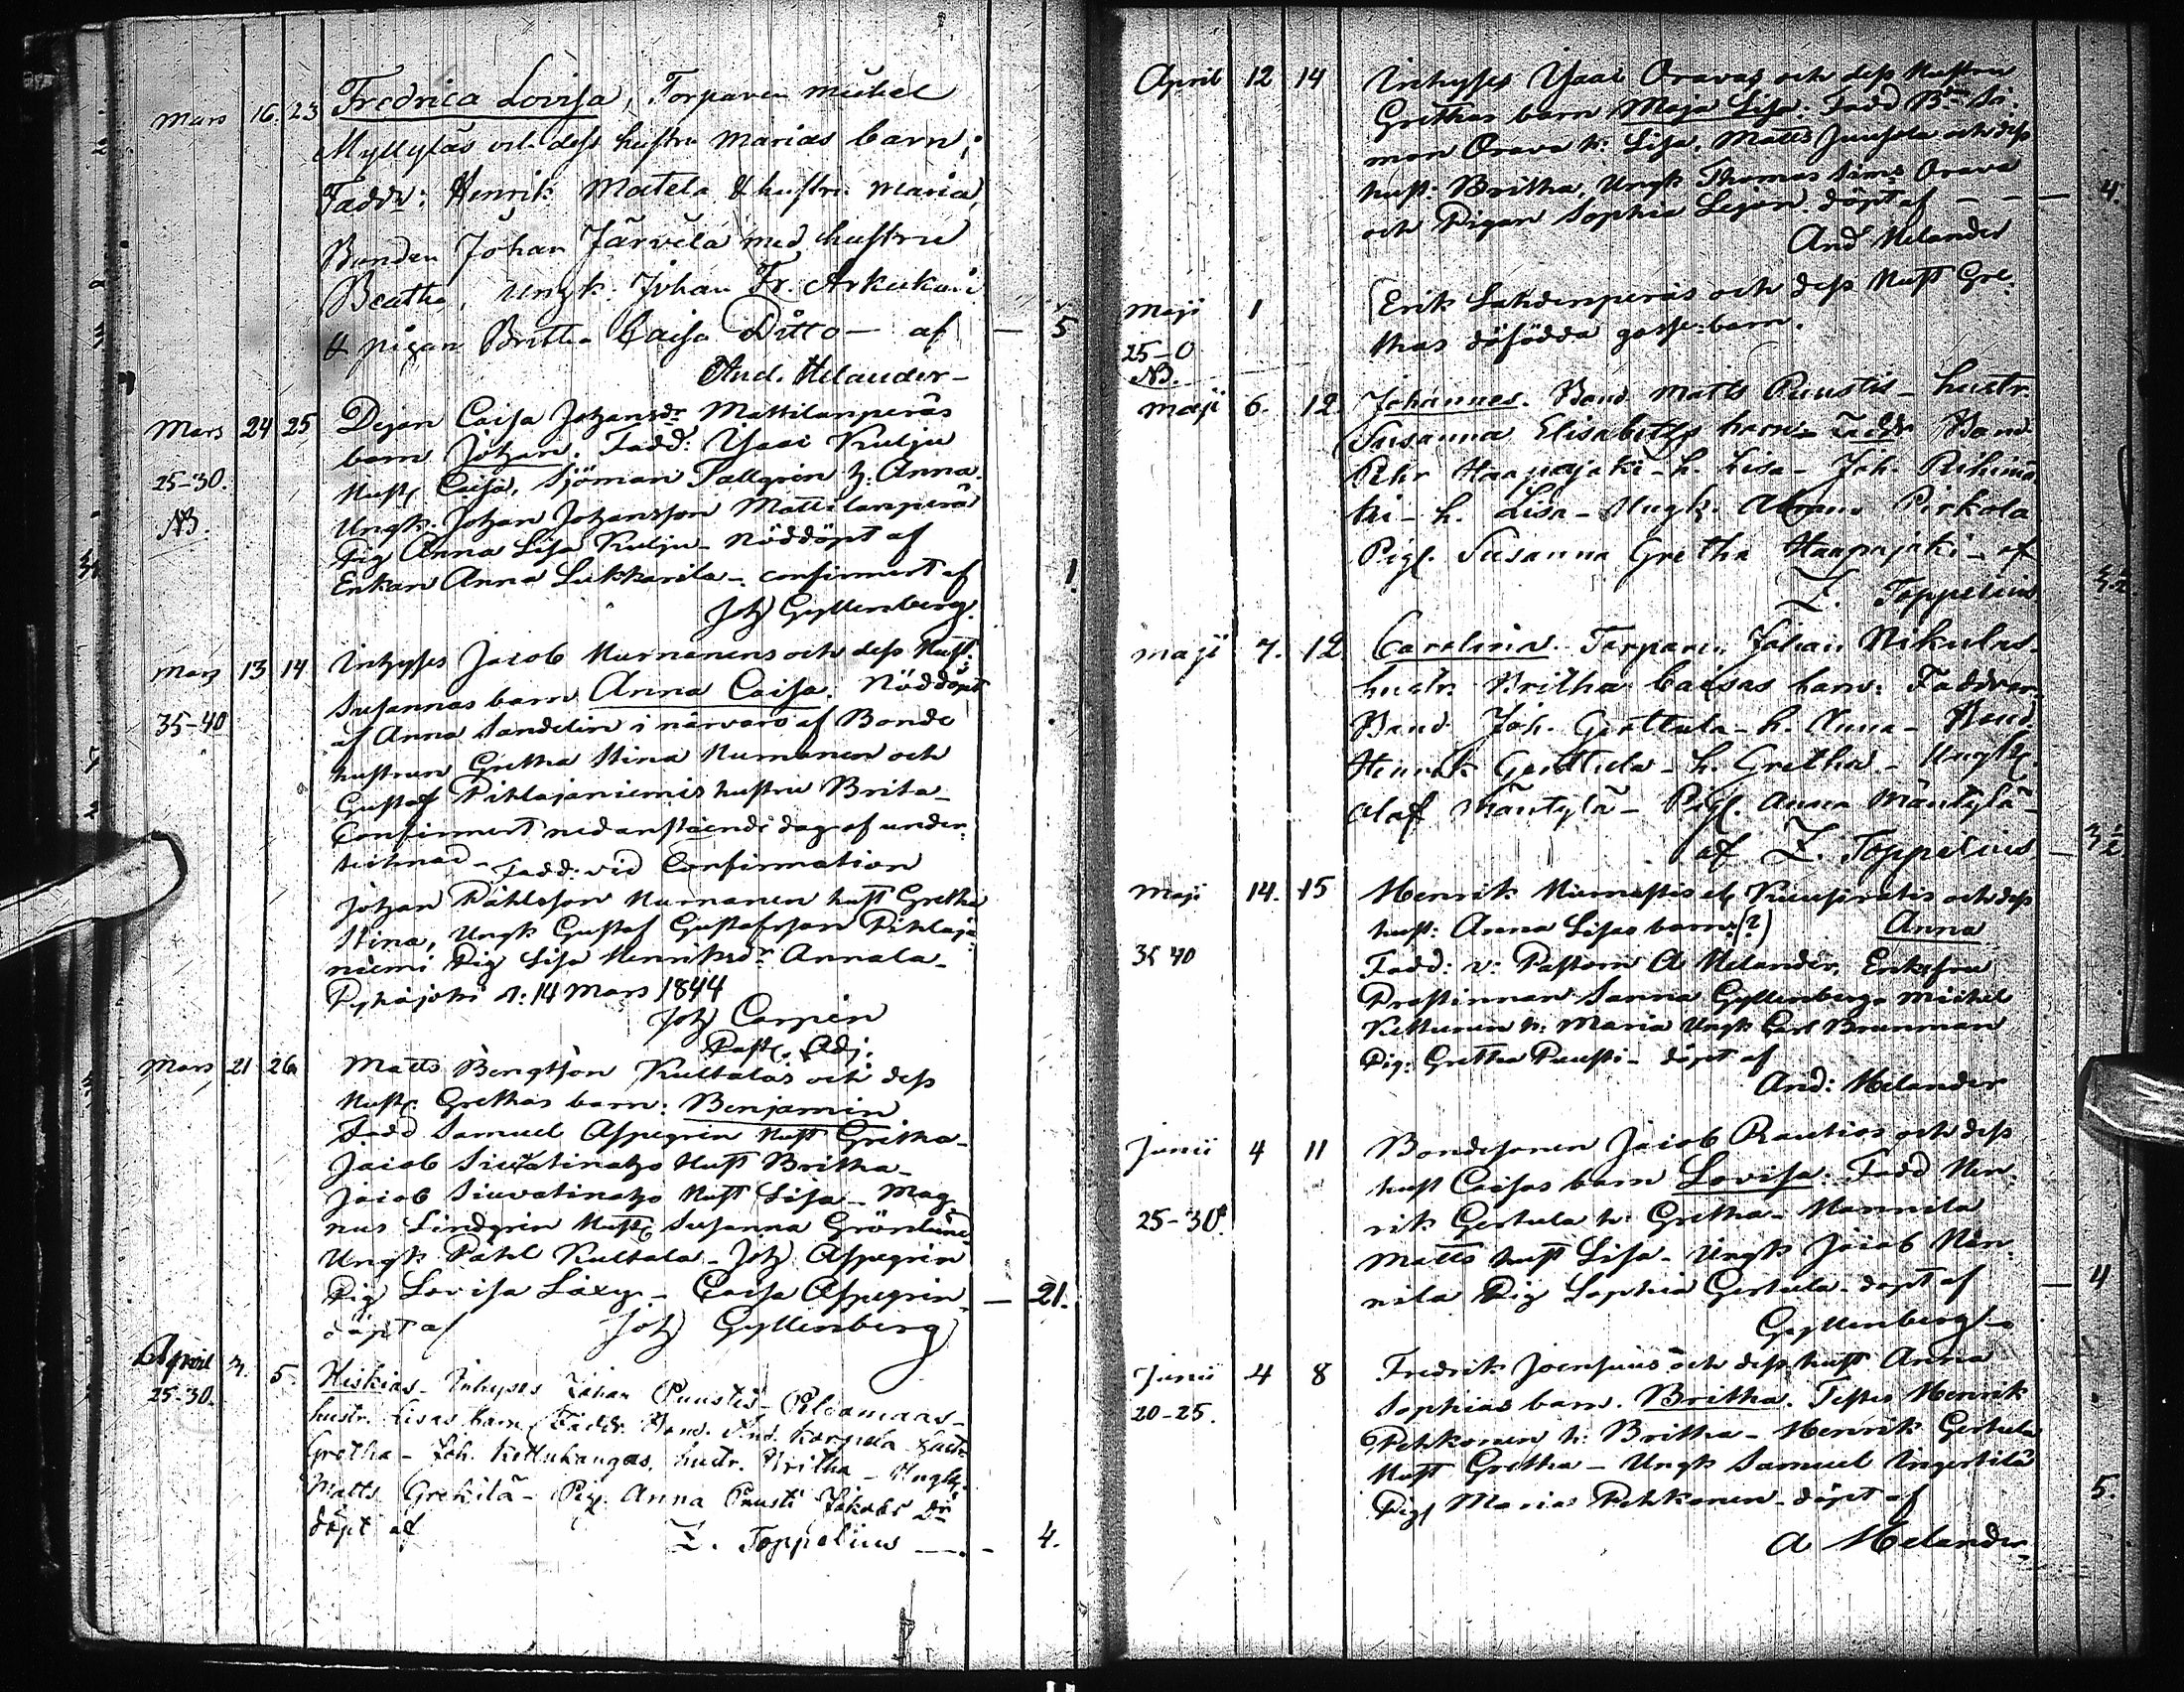 Mars 16. 23 Fredrica Lovisa, Torparen Michel
Myllyläs och dess hustru Marias barn;
Faddr: Henrik Matela & hustru Maria,
Bonden Johan Järvelä med hustru
Beatha, Ungk. Johan Fr. Arkukari
& pigan Britha Caisa Ditto — af — 5
And. Helander —
Mars 24 25 Caisa Johansdr Mattilanperäs
barn Johan. Fadd: Isaac Kulju
25-30. Hust. Caisa, Sjöman Tallgren h. Anna.
NB. Ungk. Johan Johansson Mattilanperä
Pig Anna Lisa Kulju — Nöddöpt af
Enkan Anna Lukkarila — confirmert af 1
Joh Gyllenberg.
Mars 13 14 Inhyses Jacob Nurnanens och dess Hust.
Susannas barn Anna Caisa. Nöddöpt
35-40 af Anna Sandelin i närvaro af Bonde
hustrun Gretha Stina Nurnanen och
Gustaf Pihlajaniemis hustru Brita —
Confirmert nedanstående dag af under-
tecknad — Fadd: vid Confirmation
Johan Påhlsson Nurnanen hust Gretha
Stina, Ungk Gustaf Gustafsson Pihlaja-
niemi Pig Lisa Henriksdr Annala —
Pyhäjoki d: 14 Mars 1844
Joh Carpén
Past. Adj.
Mars 21 26 Matts Bengtson Kultalas och dess
Hust. Grethas barn: Benjamin
Fadd Samuel Aspegrén Hust Gretha —
Jacob Siuvatinaho Hust Britha —
Jacob Siuvatinaho Hust Lisa — Mag-
nus Lindgrén Hust. Susanna Grönlund
Ungk Påhl Kultala — Joh Aspegrén
Pig Lovisa — Caisa Aspegrén — 21.
döpt af Joh Gyllenberg
April 3. 5. Hiskias — Inhyses Johan Puustis —
25-30. hustr. Lisas barn Faddr. Bond. And. Korpela hustr
Gretha — Joh. Kettukangas, hustr. Britha — Ungk.
Matts Grekilä — Pig. Anna Puusti Jakobs Dr
döpt af Z. Toppelius — 4.
April 12 14 Inhyses Isaac Oravas och dess Hustru
Grethas barn Maja Lisa: Fadd Bn Si-
mon Orava h: Lisa. Matts Juusola och dess
hust: Britha, Ungk Thomas Sims Orava
och Pigan Sophia Lejon. döpt af — — — 4.
And Helander
Maji 1 Erik Lahdenperäs och dess Hust Gre-
25-0 thas döfödda gosse-barn.
NB.
Maji 6. 12. Johannes. Bond Matts Puustis — hustr.
Susanna Elisabeths barn — Faddr Bond.
Pehr Haapajoki — h. Lisa — Joh. Rihimä
ki — h. Lisa — Ungk. Abram Pirkola
Pig. Susanna Gretha Haapajoki — af
Z. Toppelius 3½
Maji 7. 12. Carolina. Torparen Johan Nikulas
hustr. Britha Caisas barn: Faddrar
Bond Joh. Gerttula — h. Anna — Bond.
Henrik Gerttula — h. Gretha — Ungk.
Olof Mäntylä — Pig. Anna Mäntylä —
af Z. Toppelius — 3½
Maji 14. 15 Henrik Kuusiratis och dess
hust: Anna Lisas barn:(?) Anna
35 40 Fadd: v: Pastorn A Helander, Enkefru
Prostinnan Sanna Gyllenberg, Michel
Kettunen h: Maria Ungk Carl Brunman
Pig: Gretha Puusti — döpt af
And: Helander
Junii 4 11 Bondesonen Jacob Rautios och dess
hust Caisas barn Lovisa: Fadd Hen-
25-30. rik Gertula h: Gretha — Nannila
Matts hust Lisa — Ungk Jacob Nan-
nila Pig Sophia Gertula — döpt af — 4
Gyllenberg
Junii 4 8 Fredrik Joensuus och dess hust Anna
20-25. Sophias barn. Britha. Testes Henrik
Pehkonen h: Britha — Henrik Gertula
Hust Gretha — Ungk Samuel Ingertilä
Pig Maria Pehkonen — döpt af 5.
A Helander